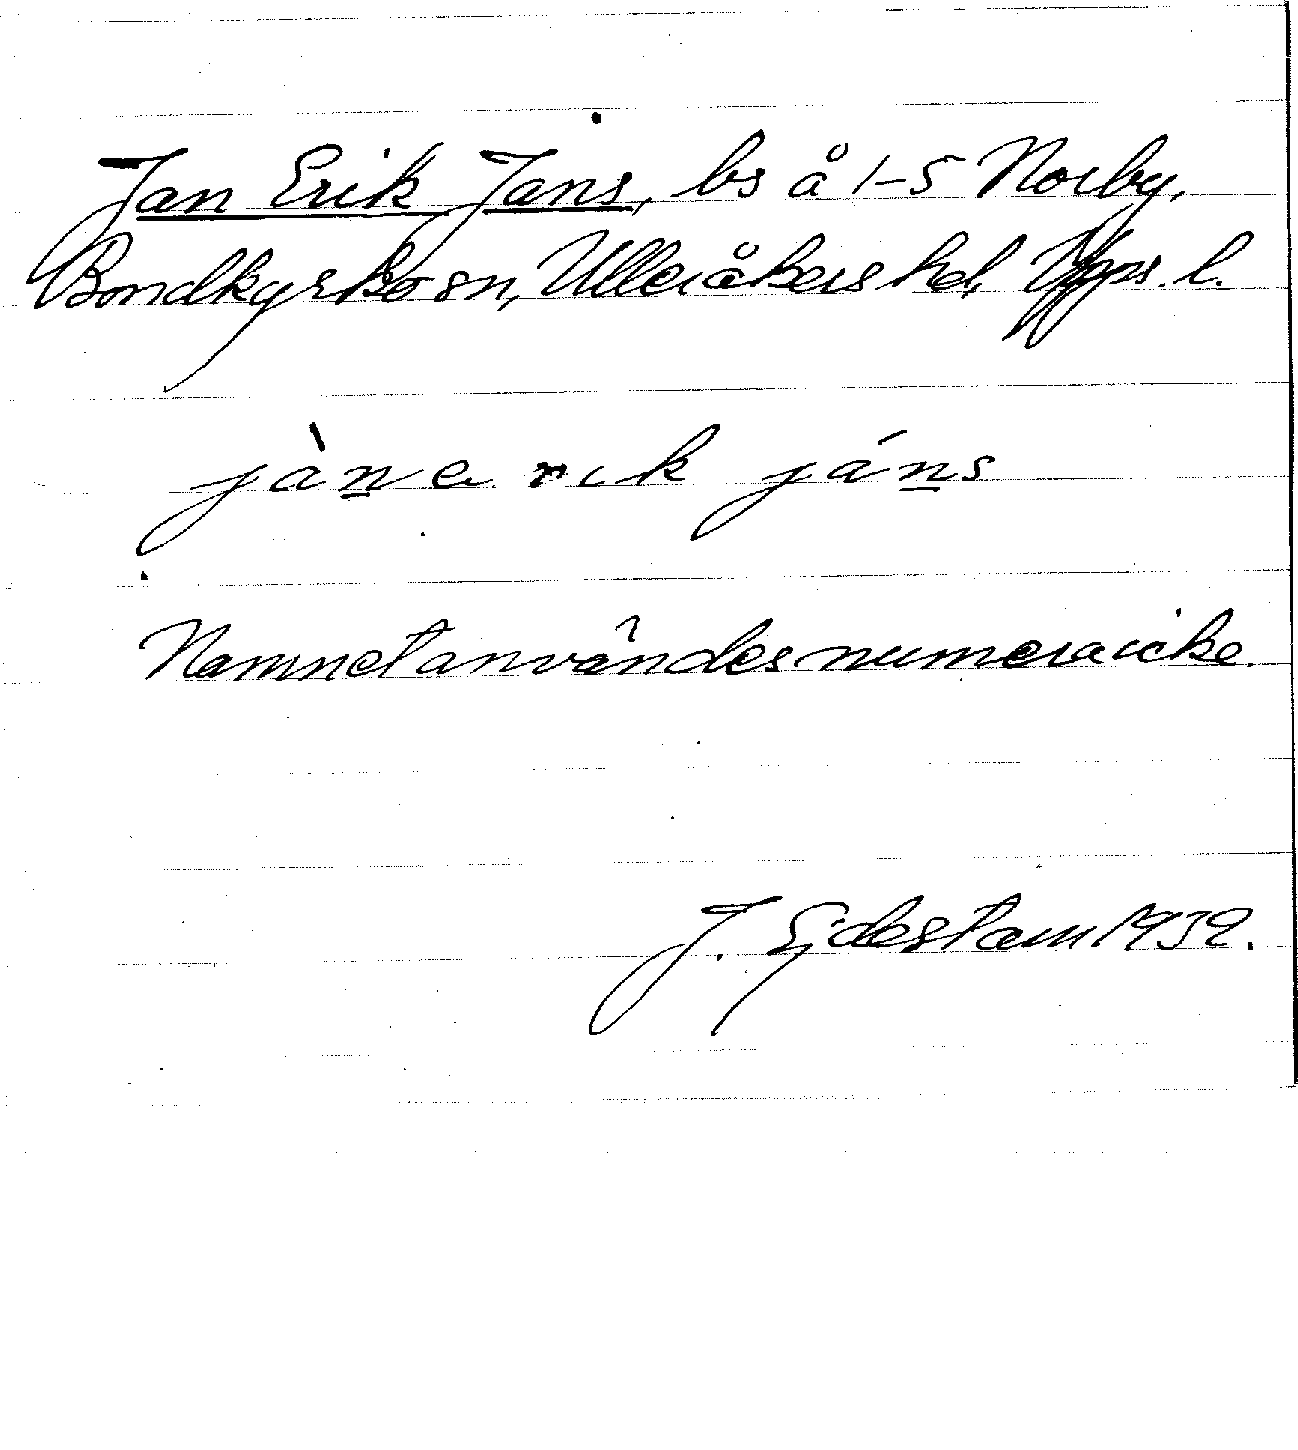 Jan Erik Jans, bs å 1-5 Norby,
Bondkyrko sn, Ulleråkers hd, Upps. l.
jàṉerik jáṉs
Namnet användes numera icke.
J. Ejdestam 1939.